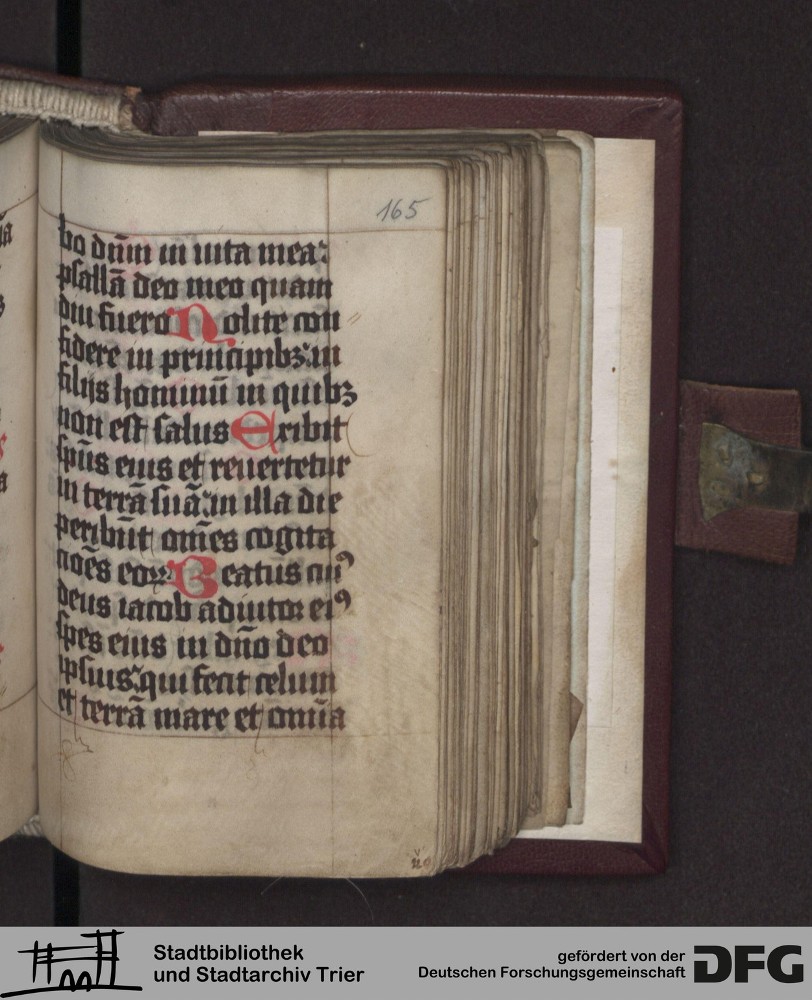 165
bo dn̄m in uita mea:
psallā deo meo quam
diu fuero Nolite con
fidere in principibꝫ: in
filijs hominū in quibꝫ
non est salus Exibit
sp̄us eius et reuertetur
in terrā suā: in illa die
peribūt om̄es cogita
cioēs eoꝝ Beatus cuiꝰ
deus iacob adiutor eiꝰ
spes eius in dn̄o deo
ipsius: qui fecit celum
et terrā mare et omīa
Stadtbibliothek
und Stadtarchiv Trier
gefördert von der
Deutschen Forschungsgemeinschaft
DFG